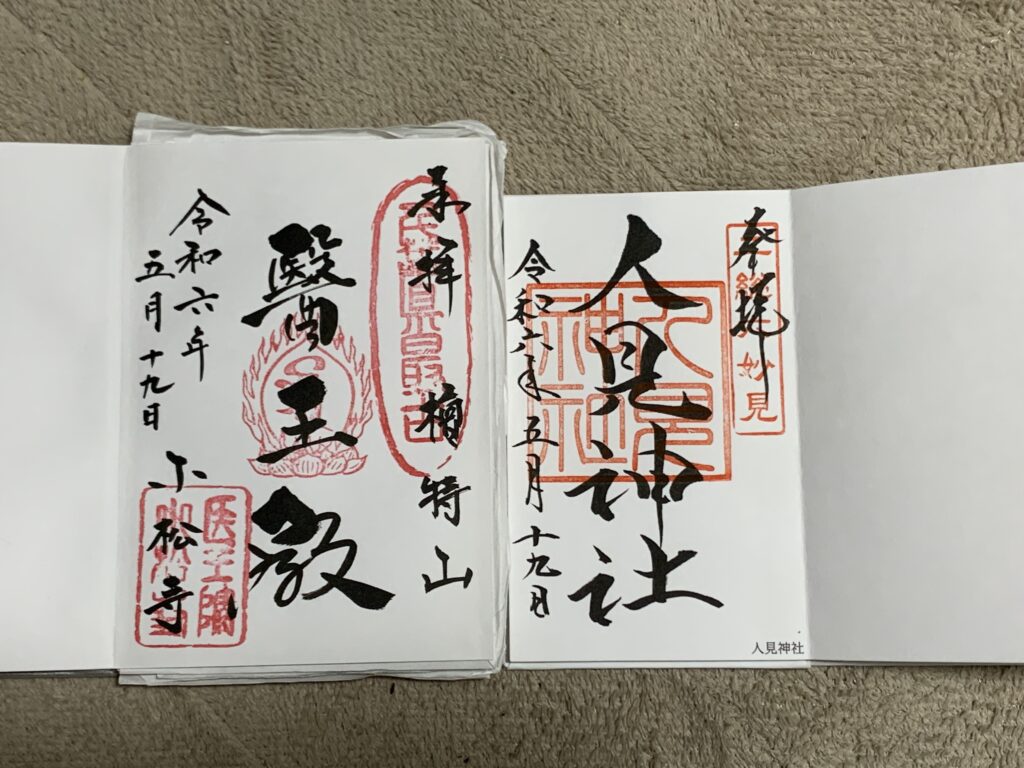 奉拝 檀特山
醫王殿
令和六年
五月十九日
小松寺
奉拝
妙見
人見神社
人見神社
令和六年五月十九日
人見神社